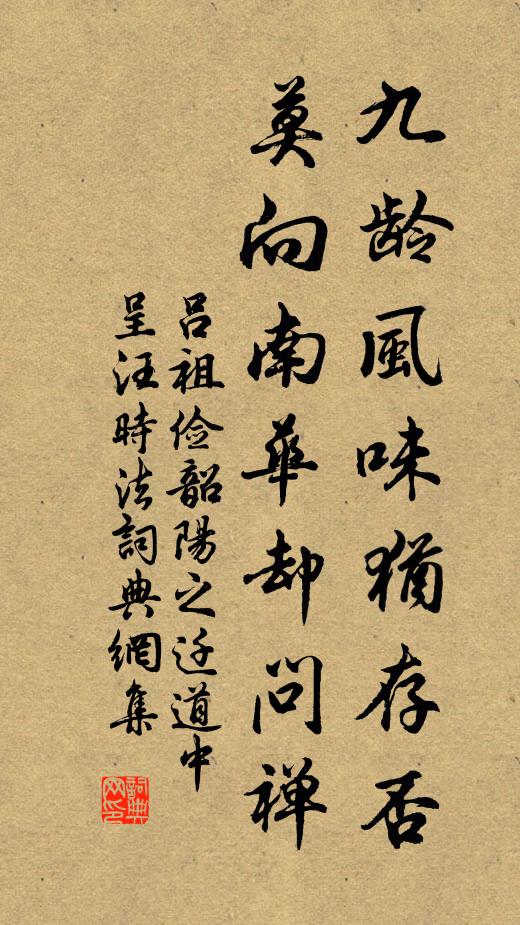 九龄風味猶存否
莫向南華却問禅
吕祖俭韶陽之迁道中
呈汪時法詞典網集
詞典网印